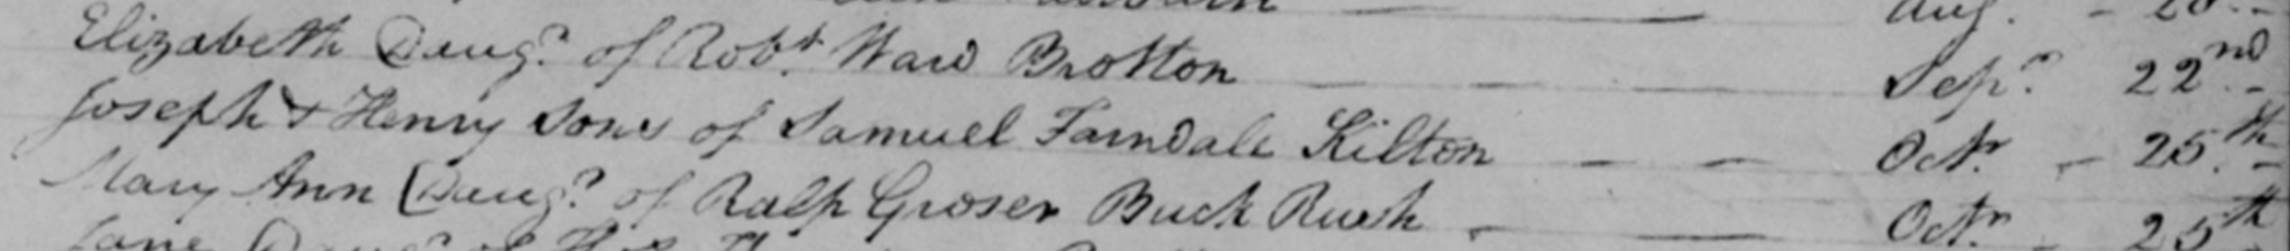 Aug. - 20 -
Elizabeth Daugr. of Robt. Ward Brotton — — Sepr. 22nd. -
Joseph & Henry Sons of Samuel Farndale Kilton — — Octr. - 25th. -
Mary Ann Daugr. of Ralph Groser Buck Rush - — Octr. 25th
Jane Daugr. of